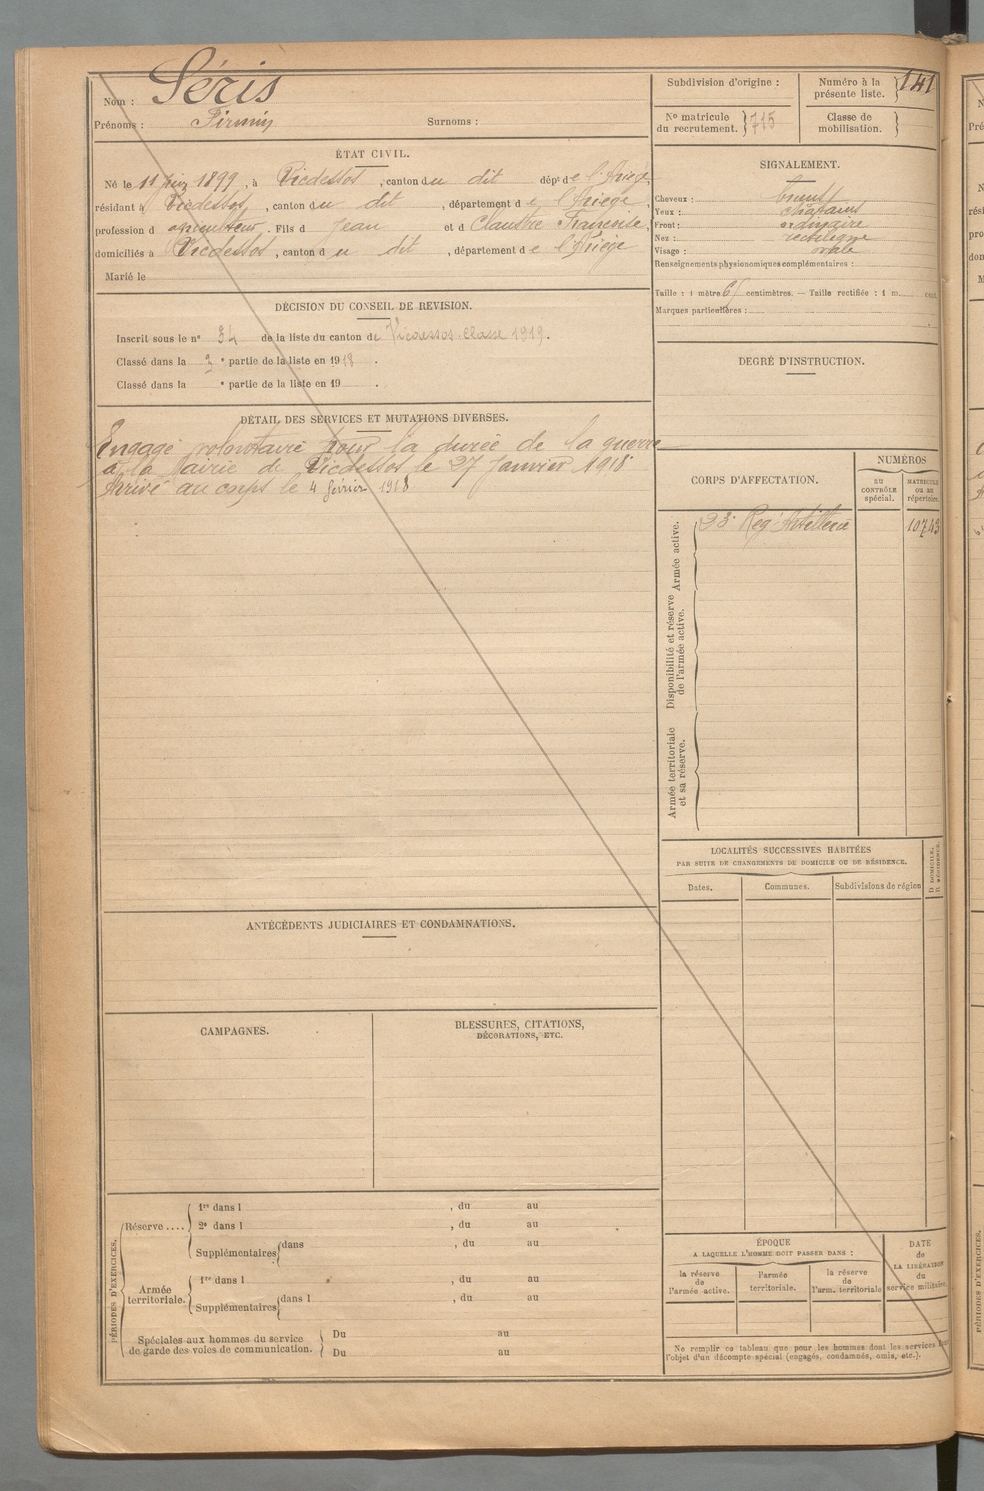 Nom : Séris
Prénoms : Firmin Surnoms :
ÉTAT CIVIL.
Né le 11 juin 1899, à Vicdessos, canton du dit dépt de l'Ariège,
résidant à Vicdessos, canton du dit, département de l'Ariège,
profession d agriculteur. Fils d Jean et d Claustre Françoise,
domiciliés à Vicdessos, canton du dit, département de l'Ariège
Marié le
DÉCISION DU CONSEIL DE REVISION.
Inscrit sous le n° 34 de la liste du canton de Vicdessos classe 1919.
Classé dans la e partie de la liste en 1918.
Classé dans la e partie de la liste en 19 .
DÉTAIL DES SERVICES ET MUTATIONS DIVERSES.
Engagé volontaire pour la durée de la guerre
à la Mairie de Vicdessos le 27 Janvier 1918
Arrivé au corps le 4 février 1918
ANTÉCÉDENTS JUDICIAIRES ET CONDAMNATIONS.
CAMPAGNES.
BLESSURES, CITATIONS,
DÉCORATIONS, ETC.
PÉRIODES D'EXERCICES.
Réserve ....
1re dans l , du au
2e dans l , du au
Supplémentaires dans , du au
Armée
territoriale.
1re dans l , du au
Supplémentaires dans l , du au
Spéciales aux hommes du service
de garde des voies de communication.
Du au
Du au
Subdivision d'origine :
Numéro à la
présente liste. 141
N° matricule
du recrutement. 715
Classe de
mobilisation.
SIGNALEMENT.
Cheveux :
Yeux : châtains
Front : ordinaire
Nez : rectiligne
Visage : ovale
Renseignements physionomiques complémentaires :
Taille : 1 mètre centimètres. — Taille rectifiée : 1 m. cent.
Marques particulières :
DEGRÉ D'INSTRUCTION.
CORPS D'AFFECTATION.
NUMÉROS
AU
CONTRÔLE
spécial.
MATRICULE
OU AU
répertoire.
Armée active.
23e Reg' Artillerie 10743
Disponibilité et réserve
de l'armée active.
Armée territoriale
et sa réserve.
LOCALITÉS SUCCESSIVES HABITÉES
PAR SUITE DE CHANGEMENTS DE DOMICILE OU DE RÉSIDENCE.
Dates. Communes. Subdivisions de région
D DOMICILE.
R RÉSIDENCE.
ÉPOQUE
A LAQUELLE L'HOMME DOIT PASSER DANS :
la réserve
de
l'armée active.
l'armée
territoriale.
la réserve
de
l'arm. territoriale
DATE
de
LA LIBÉRATION
du
service militaire.
Ne remplir ce tableau que pour les hommes dont les services font
l'objet d'un décompte spécial (engagés, condamnés, omis, etc.).
PÉRIODES D'EXERCICES.